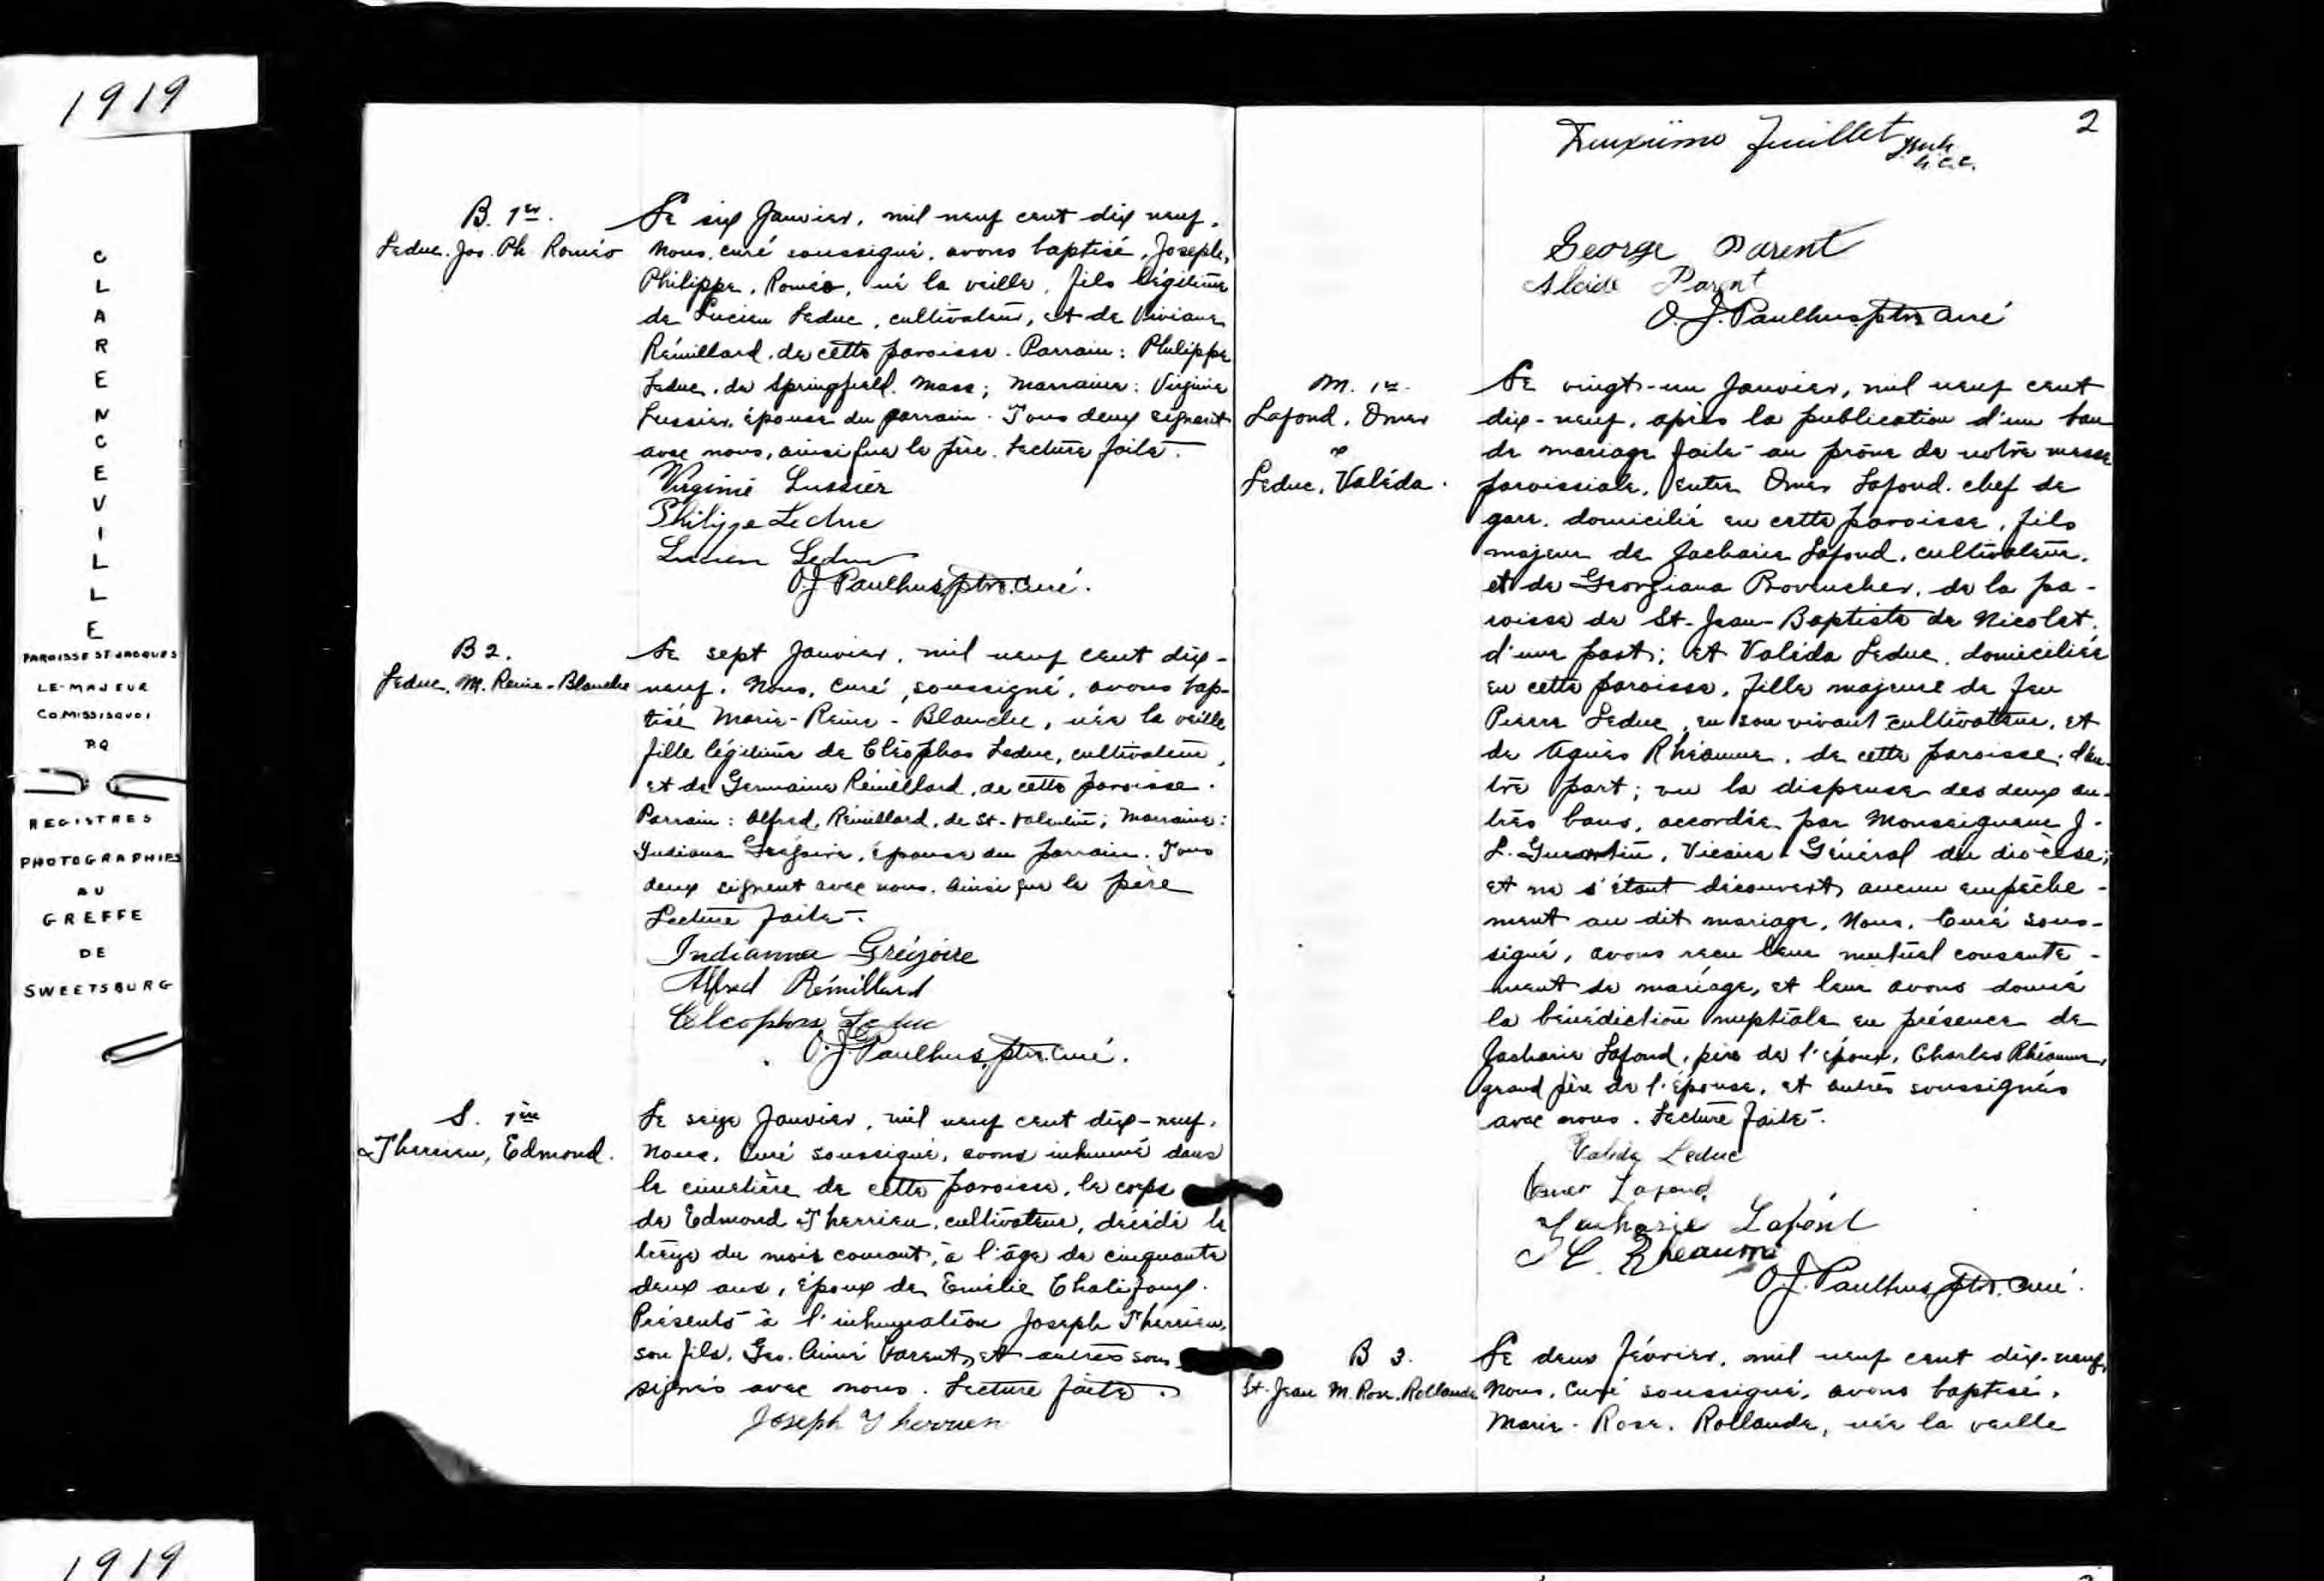 1919
CLARENCEVILLE
PAROISSE ST JACQUES
LE-MAJEUR
Co. MISSISQUOI
P.Q
REGISTRES
PHOTOGRAPHIES
AU
GREFFE
DE
SWEETSBURG
1919
B. 1er.
Leduc. Jos. Ph. Roméo
Le six Janvier, mil neuf cent dix neuf,
Nous, curé soussigné, avons baptisé, Joseph,
Philippe, Roméo, né la veille, fils légitime
de Lucien Leduc, cultivateur, et de Viviane
Rémillard, de cette paroisse. Parrain: Philippe
Leduc, de Springfield. Mass; Marraine: Virginie
Lussier, épouse du parrain. Tous deux signent
avec nous, ainsi que le père. Lecture faite.
Virginie Lussier
Philippe Leduc
Lucien Leduc
O.J. Paulhus, ptre. curé.
B 2.
Leduc, M. Reine-Blanche
Le sept Janvier, mil neuf cent dix-
neuf. Nous, Curé, soussigné, avons bap-
tisé Marie-Reine-Blanche, née la veille
fille légitime de Cléophas Leduc, cultivateur,
et de Germaine Rémillard, de cette paroisse.
Parrain: Alfred, Rémillard, de St-Valentin; Marraine:
Indiana Grégoire, épouse du parrain. Tous
deux signent avec nous, ainsi que le père
Lecture faite.
Indianna Grégoire
Alfred Rémillard
Cleophas Leduc
O.J. Paulhus, ptre. curé.
S. 1ère
Therrien, Edmond.
Le seize Janvier, mil neuf cent dix-neuf,
Nous, Curé soussigné, avons inhumé dans
le cimetière de cette paroisse, le corps
de Edmond Therrien, cultivateur, décédé le
treize du mois courant, à l'âge de cinquante
deux ans, époux de Emélie Chalifoux.
Présents à l'inhumation Joseph Therrien,
son fils, Geo. Aimé Parent, et autres sous-
signés avec nous. Lecture faite.
Joseph Therrien
2
Deuxième feuillet
George Parent
Alcide Parent
O.J. Paulhus, ptre curé
M. 1er.
Lafond, Omer
&
Leduc, Valéda.
Le vingt-un Janvier, mil neuf cent
dix-neuf, après la publication d'un ban
de mariage faite au prône de notre messe
paroissiale, entre Omer Lafond, chef de
gare, domicilié en cette paroisse, fils
majeur de Zacharie Lafond, cultivateur,
et de Georgiana Provencher, de la pa-
roisse de St-Jean-Baptiste de Nicolet,
d'une part; et Valéda Leduc, domiciliée
en cette paroisse, fille majeure de feu
Pierre Leduc, en son vivant cultivateur, et
de Agnès Rhéaume, de cette paroisse, d'au-
tre part; vu la dispense des deux au-
tres bans, accordée par Monseigneur J.
L. Guertin, Vicaire-Général du diocèse;
et ne s'étant découvert aucun empêche-
ment au dit mariage, Nous, Curé sous-
signé, avons reçu leur mutuel consente-
ment de mariage, et leur avons donné
la bénédiction nuptiale en présence de
Zacharie Lafond, père de l'époux, Charles Rhéaume,
grand père de l'épouse, et autres soussignés
avec nous. Lecture faite.
Valéda Leduc
Omer Lafond
Zacharie Lafond
Rheaume
O.J. Paulhus, ptre. curé.
B 3.
St-Jean M. Rose. Rollande
Le deux Février, mil neuf cent dix-neuf,
Nous, Curé soussigné, avons baptisé,
Marie-Rose. Rollande, née la veille